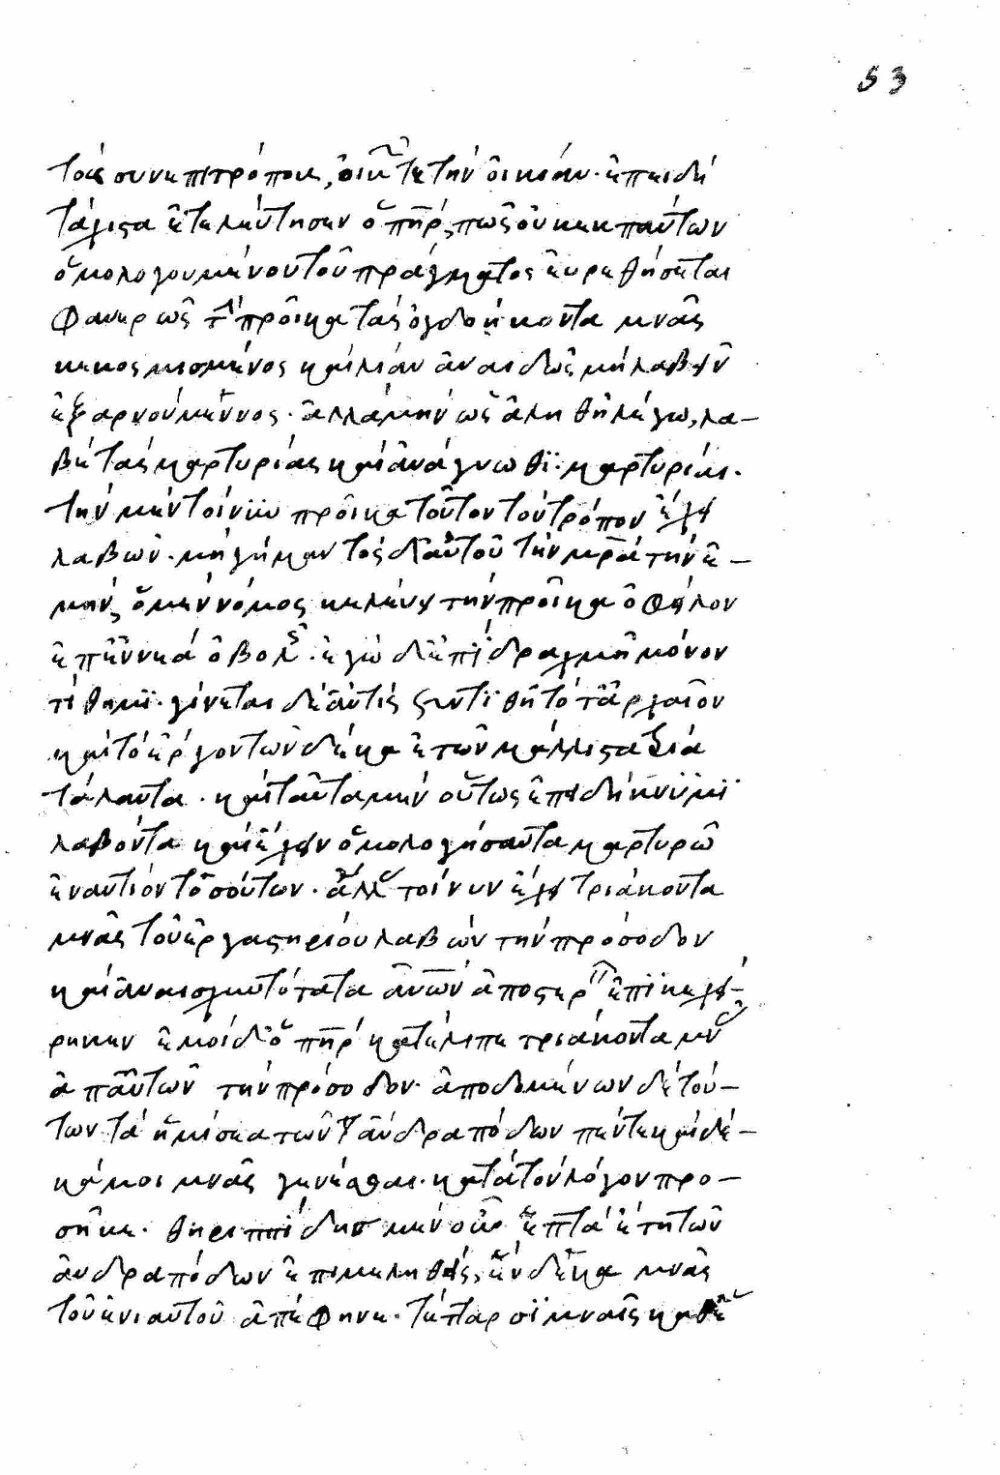 53
τοῖς συνεπιτρόποις, ὤικει τε τὴν οἰκίαν· ἐπειδὴ
τάχιστα ἐτελεύτησεν ὁ πηρ, πῶς οὐκ ἐκ πάντων
ὁμολογουμένου τοῦ πράγματος εὑρεθήσεται
φανερῶς τ προῖκα τὰς ὀγδοήκοντα μνᾶς
κεκοσμισμένος καὶ λίαν ἀναιδῶς μὴ λαβεῖν
ἐξαρνούμενος· ἀλλὰ μὴν ὡς ἀληθῆ λέγω, λα–
βὲ τὰς μαρτυρίας καὶ ἀνάγνωθϊ· μαρτυρίαι·
τὴν μὲν τοίνϋν προῖκα τοῦτον τὸν τρόπον ἔχει
λαβὼν· μὴ γήμαντος δ' αὐτοῦ τὴν μρα τὴν ἐ–
μὴν, ὁ μὲν νόμος κελεύει τὴν προῖκα ὀφείλον
ἐπ' ἐννεά ὀβολ· ἐγὼ δ' ἐπῒ δραχμῆ μόνον
τίθημϊ· γίνεται δὲ ἄν τὶς συντϊθῆ τό τ' ἀρχαῖον
καὶ τὸ ἔργον τῶν δέκα ἐτῶν μάλιστα τρία
τάλαντα· καὶ ταῦτα μὲν οὕτως ἐπιδείκνϋμϊ
λαβόντα καὶ ἔχειν ὁμολογήσαντα μαρτύρων
ἐναντίον τοσούτων· ἄλλ τοίνυν ἔχει τριάκοντα
μνᾶς τοῦ ἐργαστηρίου λαβὼν τὴν πρόσοδον
καὶ ἀναισχυντότατα ἀνων ἀποστερ ἐπϊκεχεί–
ρηκεν ἐμοὶ δ' ὁ πηρ κατέλιπε τριάκοντα μν
ἀπ' αὐτῶν τὴν πρόσοδον· ἀποδομένων δὲ τού–
των τὰ ἡμίσεα τῶν ἀνδραπόδων πέντε καὶ δέ–
κά μοι μνᾶς γενέσθαι· κατὰ τὸν λόγον προ–
σῆκε· θηριππίδησ μὲν οὖν ἑπτὰ ἔτη τῶν
ἀνδραπόδων ἐπιμεληθεὶς, ἕνδεκα μνᾶς
τοῦ ἐνιαυτοῦ ἀπέφηνε· τέτταρσϊ μναῖς καθ'